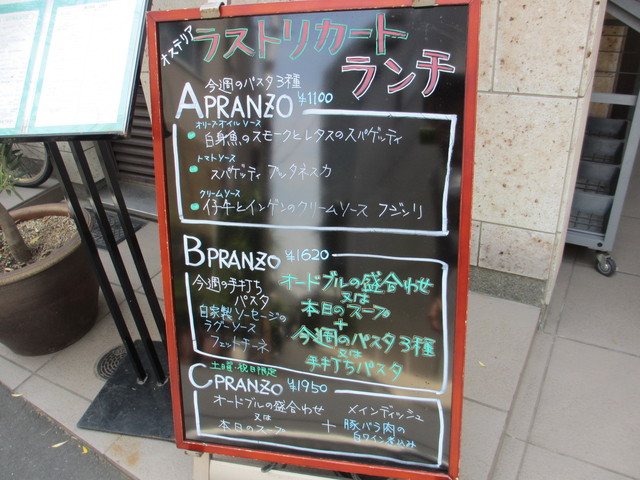 オステリア
ラストリカート
ランチ
今週のパスタ3種
A PRANZO ¥1100
オリーブオイルソース
白身魚のスモークとレタスのスパゲッティ
トマトソース
スパゲッティ プッタネスカ
クリームソース
仔牛とインゲンのクリームソース フジッリ
B PRANZO ¥1620
今週の手打ち
パスタ
自家製ソーセージの
ラグーソース
フェットチーネ
オードブルの盛合わせ
又は
本日のスープ
+
今週のパスタ3種
又は
手打ちパスタ
土曜・祝日限定
C PRANZO ¥1950
オードブルの盛合わせ
又は
本日のスープ
+
メインディッシュ
豚バラ肉の
白ワイン煮込み